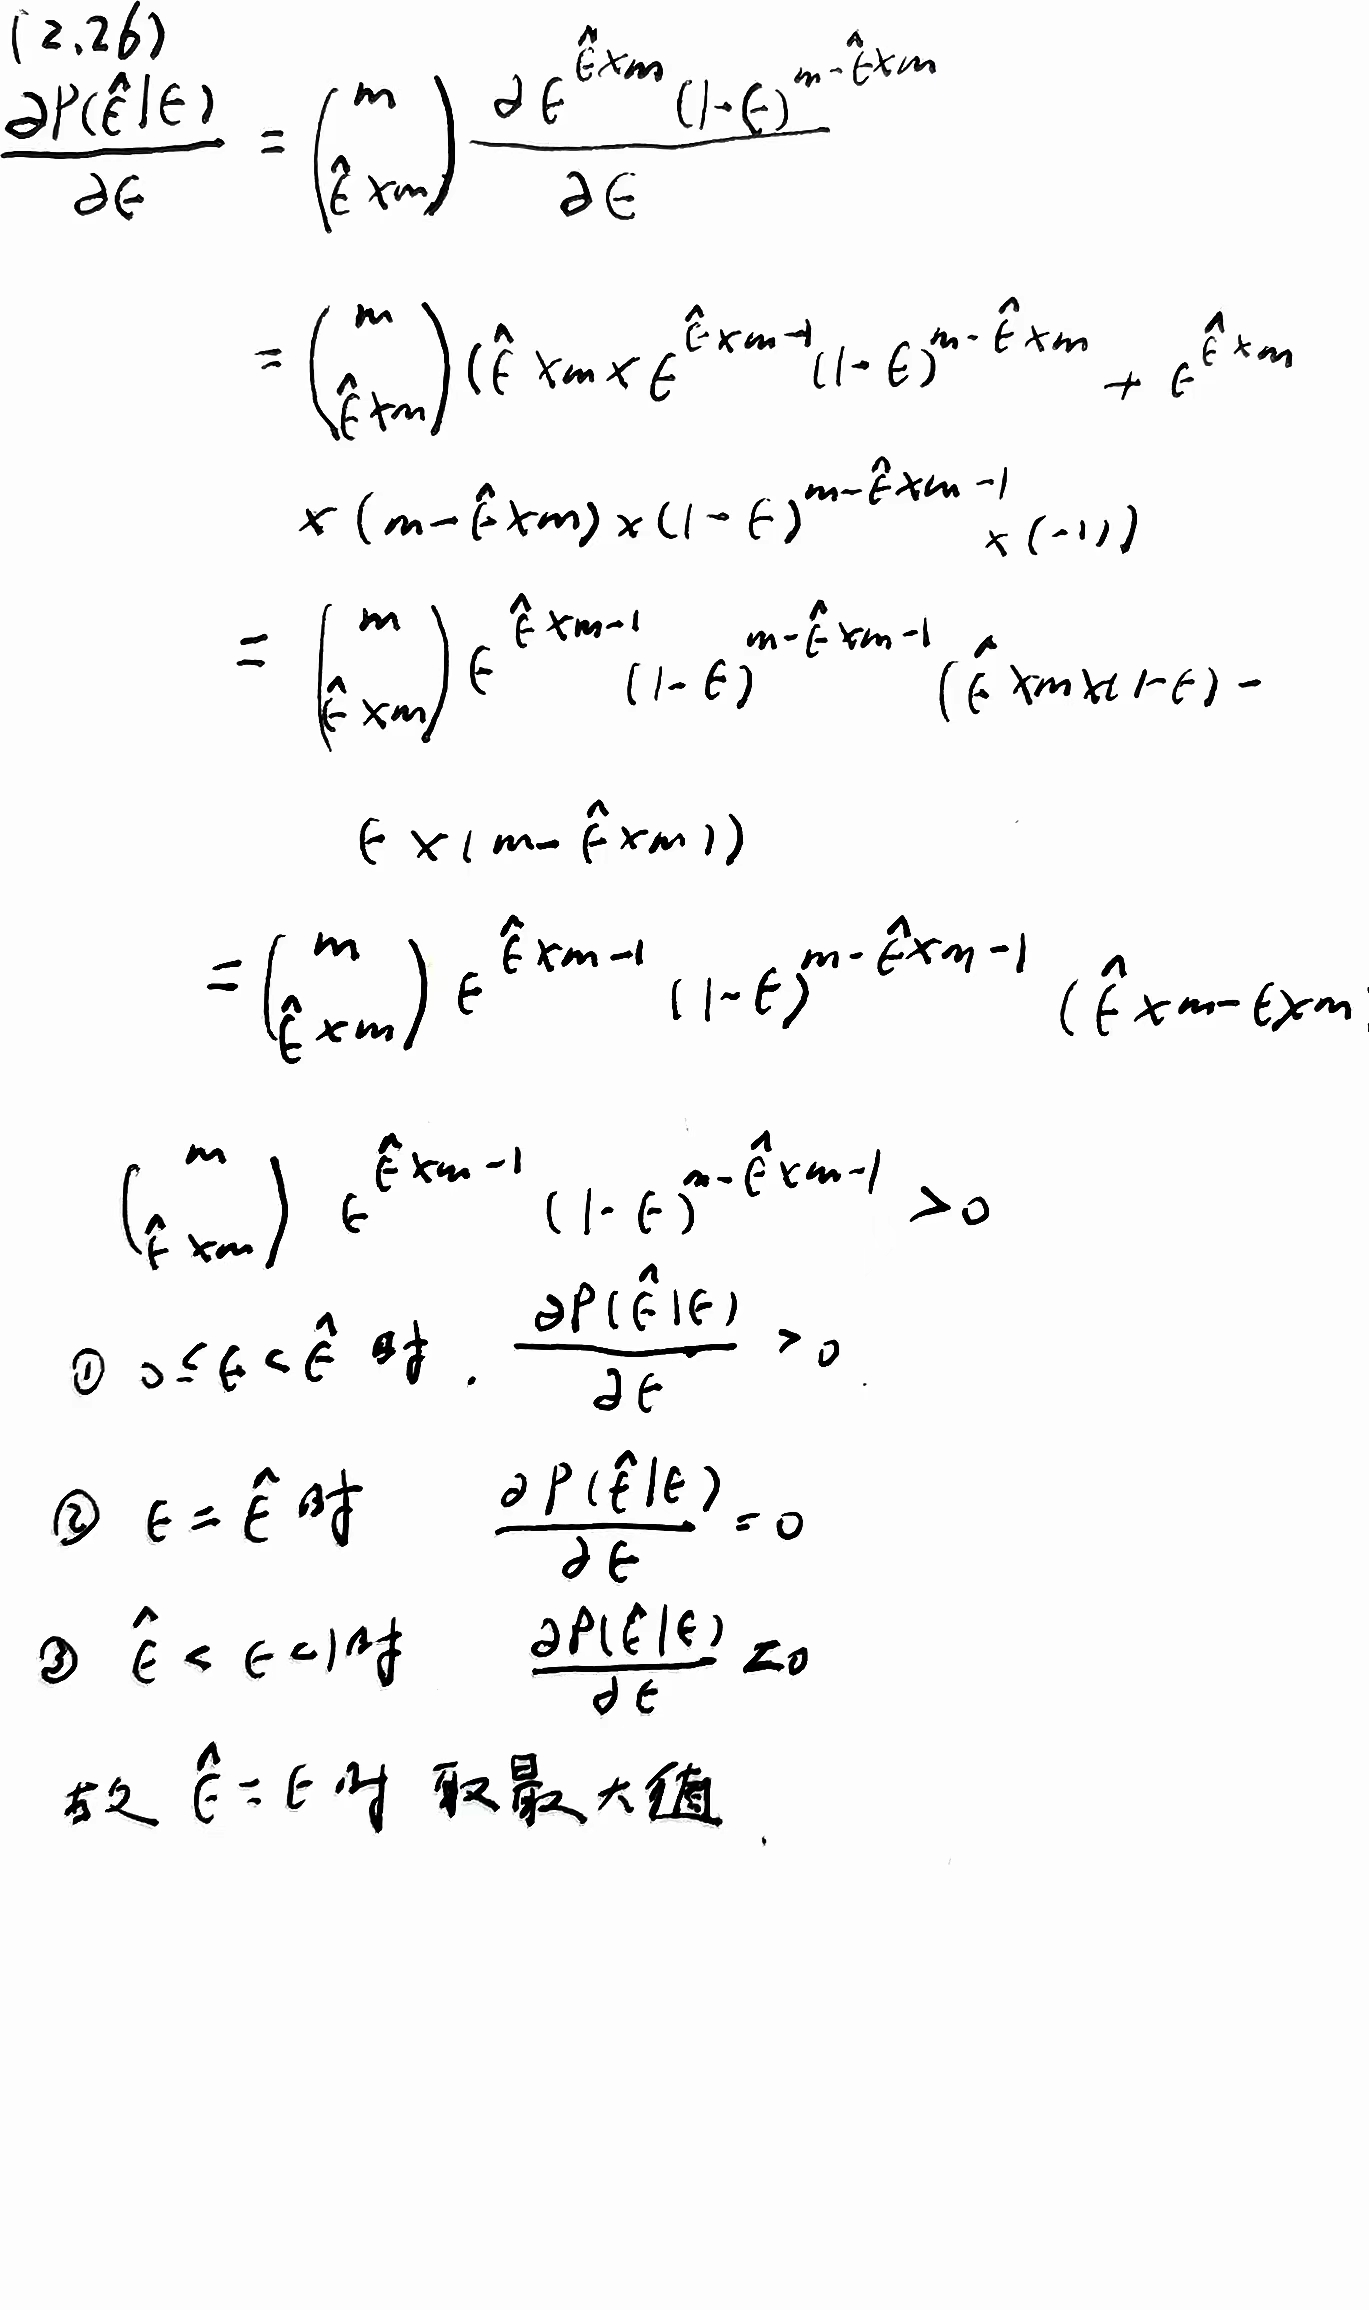 (2.26)
∂P(ϵ̂|ϵ)/∂ϵ = (m ϵ̂×m) ∂ϵ^{ϵ̂×m}(1-ϵ)^{m-ϵ̂×m}/∂ϵ
= (m ϵ̂×m)(ϵ̂×m×ϵ^{ϵ̂×m-1}(1-ϵ)^{m-ϵ̂×m} + ϵ^{ϵ̂×m}
×(m-ϵ̂×m)×(1-ϵ)^{m-ϵ̂×m-1}×(-1))
= (m ϵ̂×m) ϵ^{ϵ̂×m-1}(1-ϵ)^{m-ϵ̂×m-1}(ϵ̂×m×(1-ϵ)-
ϵ×(m-ϵ̂×m))
= (m ϵ̂×m) ϵ^{ϵ̂×m-1}(1-ϵ)^{m-ϵ̂×m-1}(ϵ̂×m-ϵ×m)
(m ϵ̂×m) ϵ^{ϵ̂×m-1}(1-ϵ)^{m-ϵ̂×m-1} >0
① 0≤ϵ<ϵ̂时. ∂P(ϵ̂|ϵ)/∂ϵ >0
② ϵ=ϵ̂时 ∂P(ϵ̂|ϵ)/∂ϵ =0
③ ϵ̂<ϵ<1时 ∂P(ϵ̂|ϵ)/∂ϵ <0
故 ϵ̂=ϵ时 取最大值.